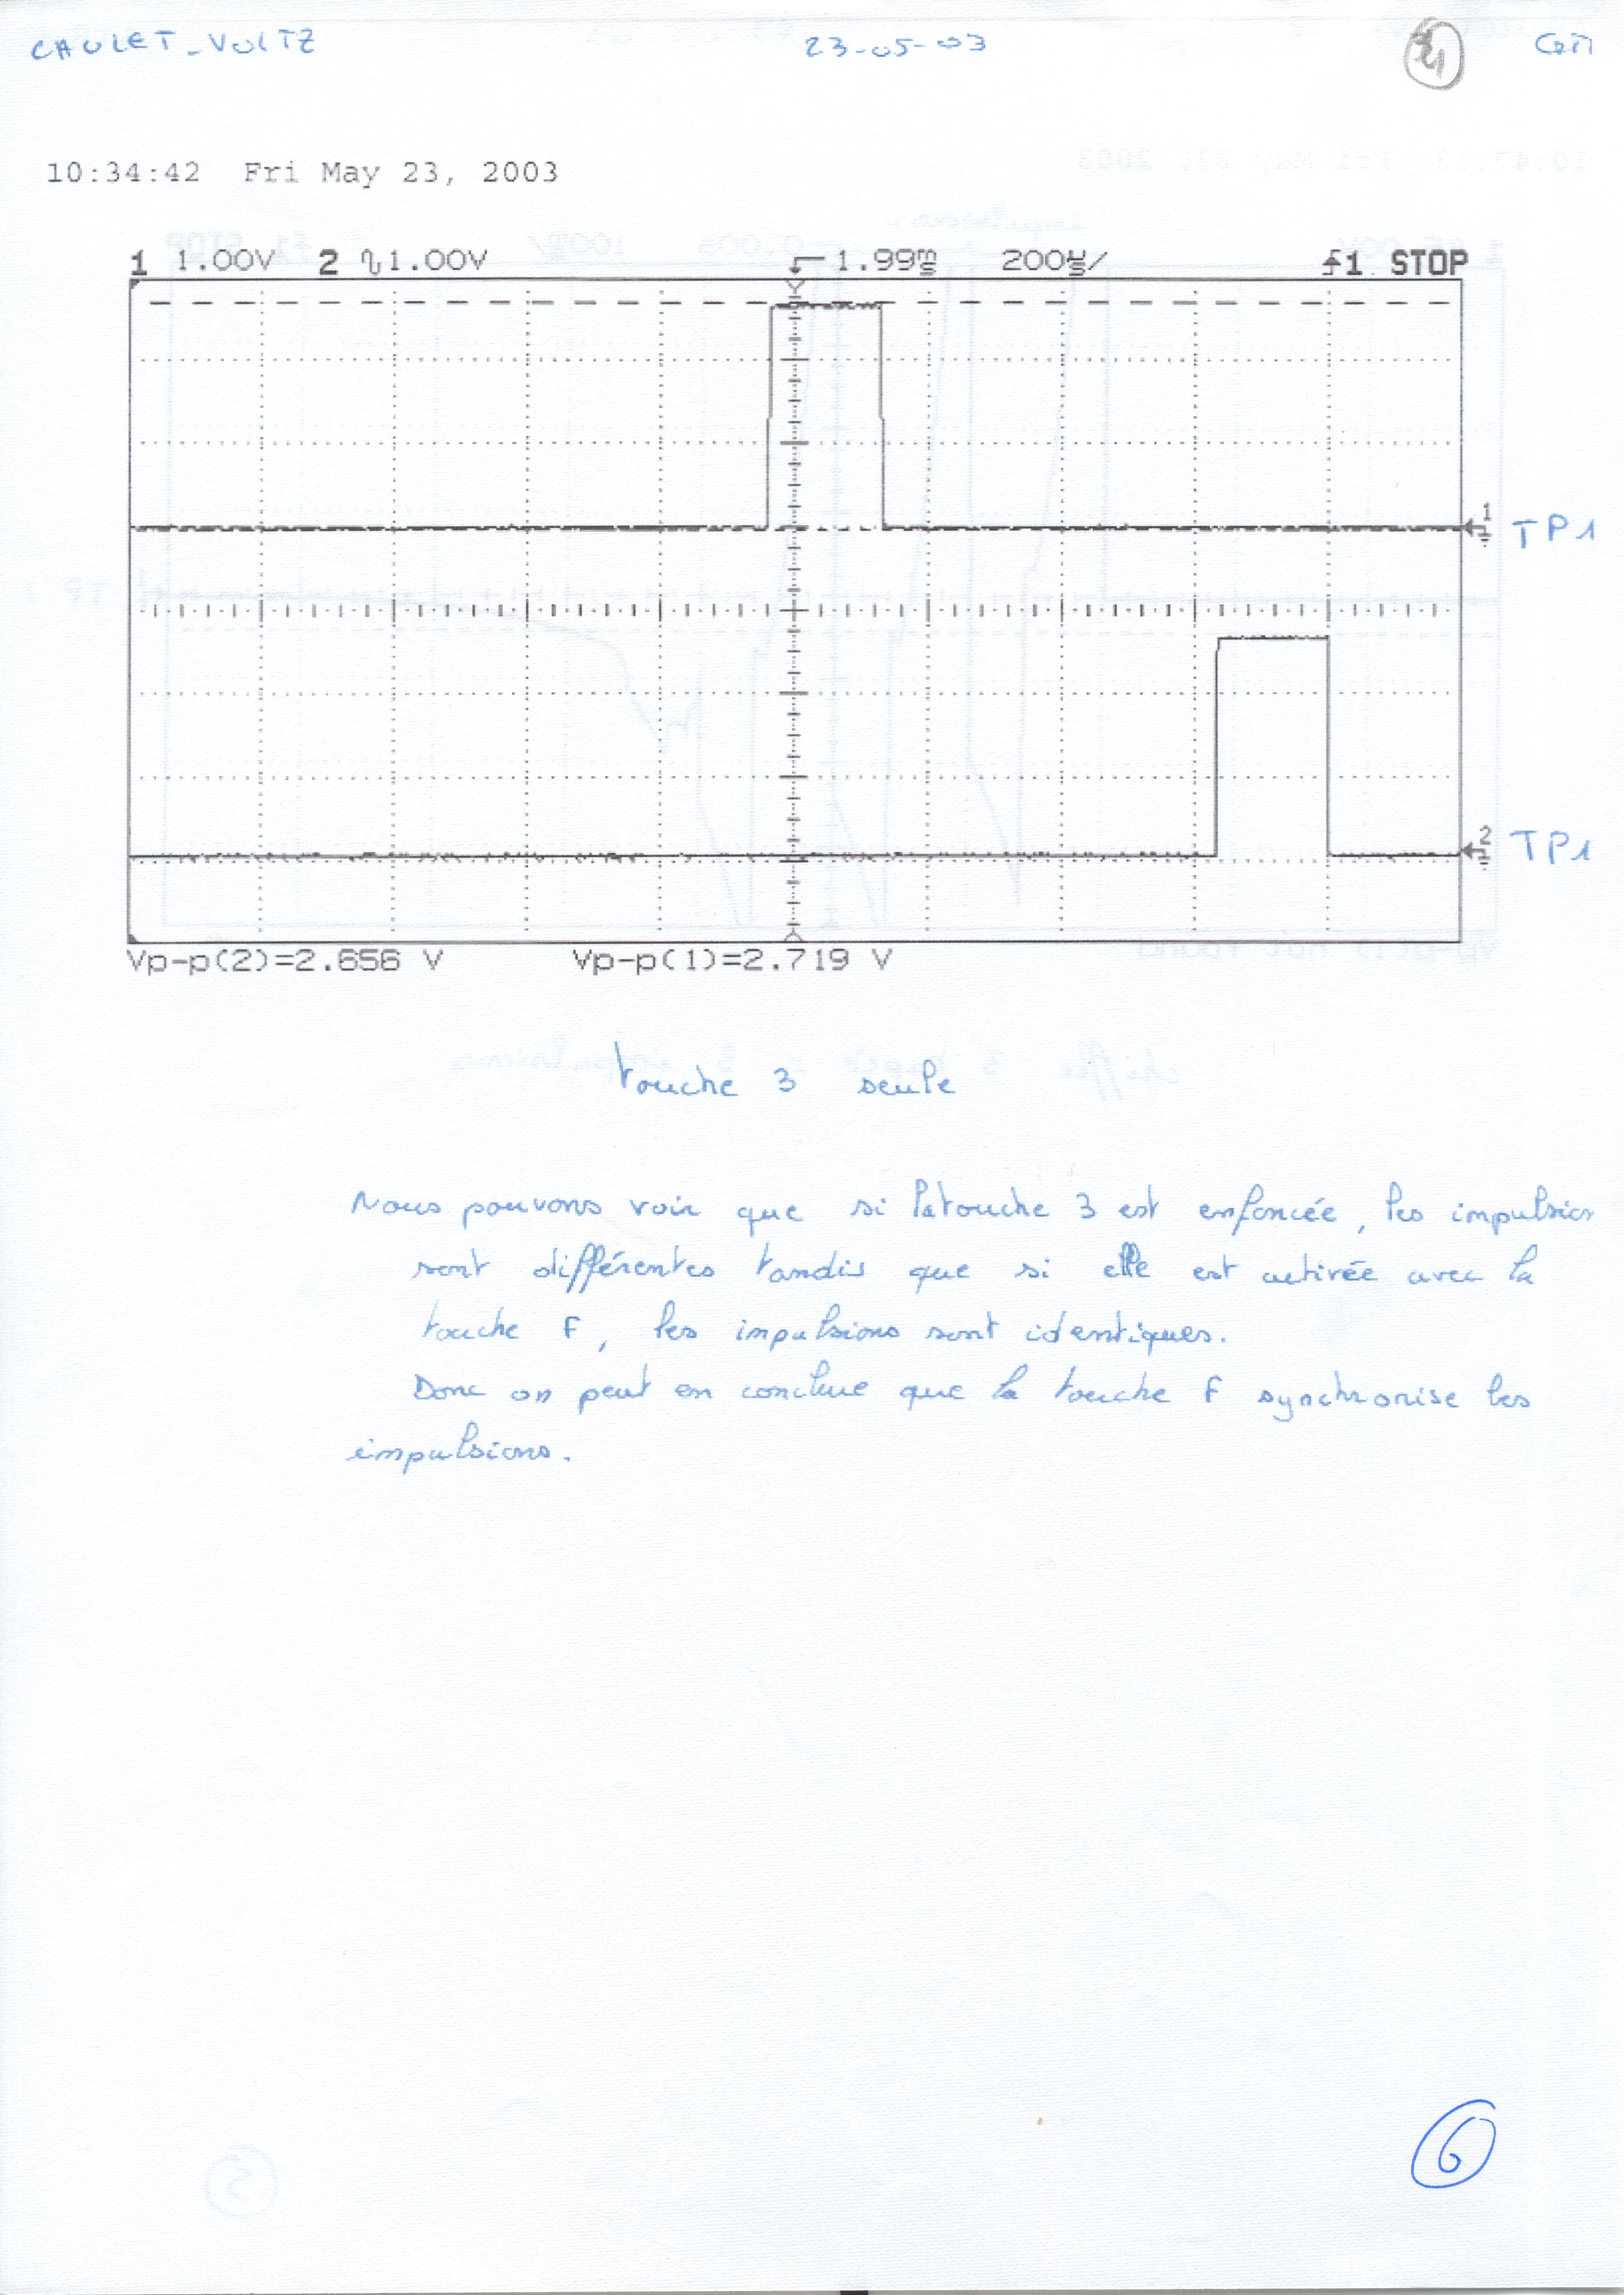 CAULET_VOLTZ 23-05-03
10:34:42 Fri May 23, 2003
1 1.00V 2 1.00V 1.99ms 200µs/ 1 STOP
1 TP1
2 TP1
Vp-p(2)=2.656 V Vp-p(1)=2.719 V
touche 3 seule
Nous pouvons voir que si la touche 3 est enfoncée, les impulsion
sont différentes tandis que si elle est activée avec la
touche F, les impulsions sont identiques.
Donc on peut en conclure que la touche F synchronise les
impulsions.
6